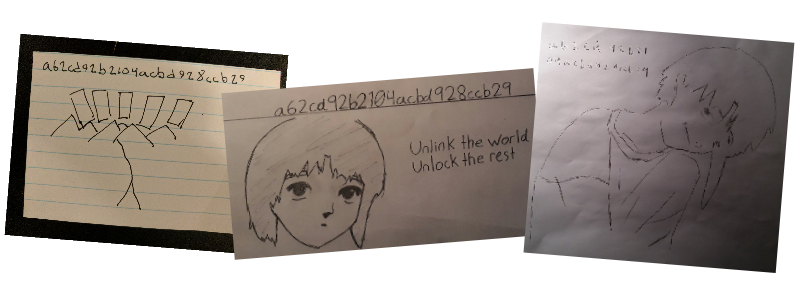 a62cd92b2104acbd928ccb29
a62cd92b2104acbd928ccb29
Unlink the world
Unlock the rest